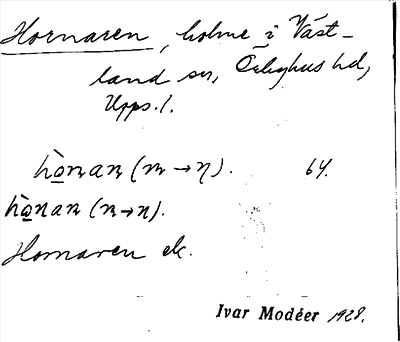 Hornaren, holme i Väst-
land sn, Örbyhus hd,
Upps. l.
hò̱nan (n → η). 64.
hò̱nan (n→n).
Hornaren ek.
Ivar Modéer 1928.